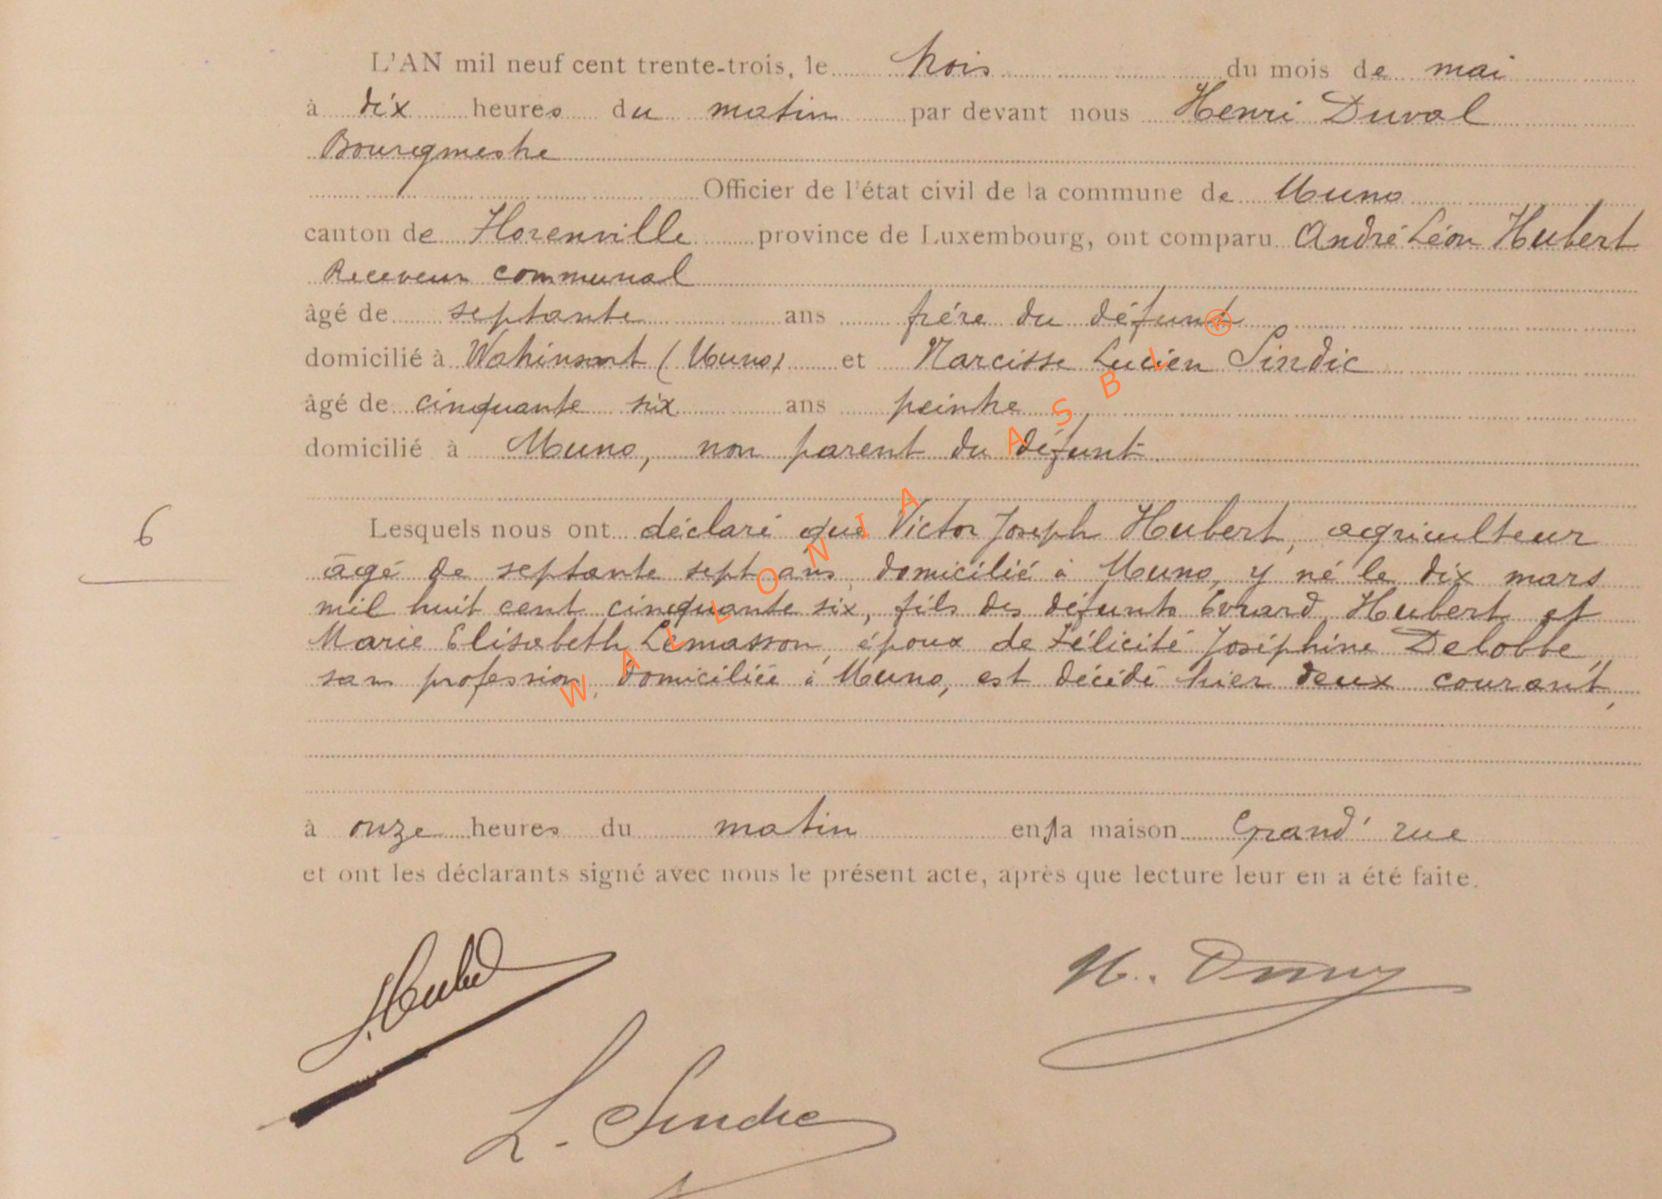 L'AN mil neuf cent trente-trois, le trois du mois de mai
à dix heures du matin par devant nous Henri Duval
Bourgmestre
Officier de l'état civil de la commune de Muno
canton de Florenville province de Luxembourg, ont comparu André Léon Hubert
Receveur communal
âgé de septante ans frére du défunt
domicilié à Wahinsart (Muno) et Narcisse Lucien Sindic
âgé de cinquante six ans peintre,
domicilié à Muno, non parent du défunt.
6
Lesquels nous ont déclaré que Victor Joseph Hubert, agriculteur
âgé de septante sept ans, domicilié à Muno, y né le dix mars
mil huit cent cinquante six, fils des défunts Evrard Hubert et
Marie Elisabeth Lemasson, époux de Félicité Joséphine Delobbe,
sans profession, domiciliée à Muno, est décédé hier deux courant,
à onze heures du matin en sa maison Grand'rue
et ont les déclarants signé avec nous le présent acte, après que lecture leur en a été faite.
Hubert
H. Duval
L. Sindic
WALLONIA ASBL ®